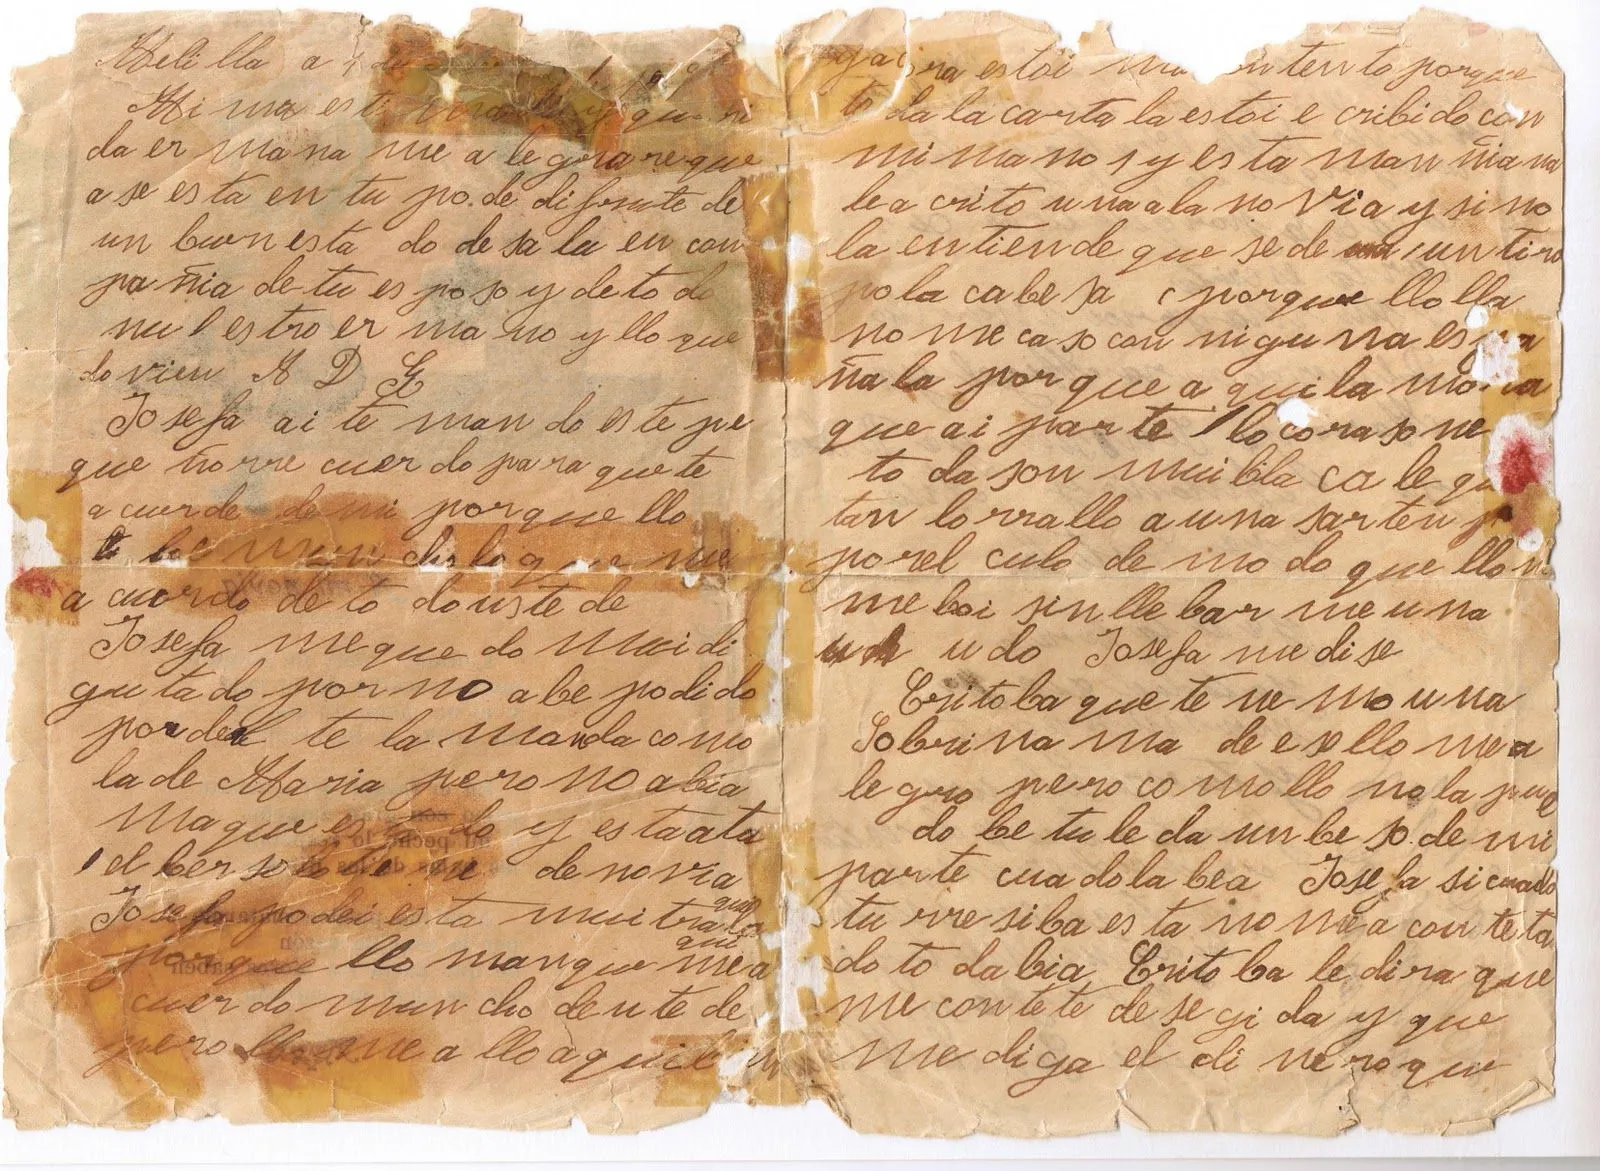 Melilla a 4 de
Mi ma esti y que ri
da er ma na me a le gra re que
a se es ta en tu po.de di frute de
un buen esta do de sa lu en con
pa ñia de tu es po so y de to do
nu l estro er ma no y llo que
do vien A D G
Josefa ai te man do es te pe
que ño rre cuer do pa ra que te
a cuerde de mi porque llo
mun cho lo que me
a cuerdo de to do uste de
Josefa me que do mui di
gu ta do por no abe podi do
por der te la manda como
la de Maria pero no abia
ma que es do y esta ata
el ber so de novia
Josefa po dei es ta mui tra
que lo
por que llo man que me a
que
cuer do mun cho de u te de
pero me a llo a qui
ra es toi ma con ten to porque
to da la carta la estoi e cribi do con
mi ma no s y es ta man ñia na
le a crito una a la no via y si no
la en tien de que se de un ti ro
po la ca be sa porque llo lla
no me ca so con ni gu na es pa
ña la por que a qui la mo ra
que ai par te llo co ra so ne
to da son mui bla ca le gu
tan lo rra llo a u na sar ten
por el culo de mo do que llo n
me boi sin lle bar me u na
u do Josefa me di se
Crito ba que te ne mo u na
Sobri na ma de e so llo me a
le gro pero co mo llo no la pue
do be tu le da un be so de mi
parte cua do la bea Josefa si cuado
tu rre si ba es ta no me a con te ta
do to da bia Crito ba le di ra que
me con te te de se gi da y que
me di ga el di ne ro que